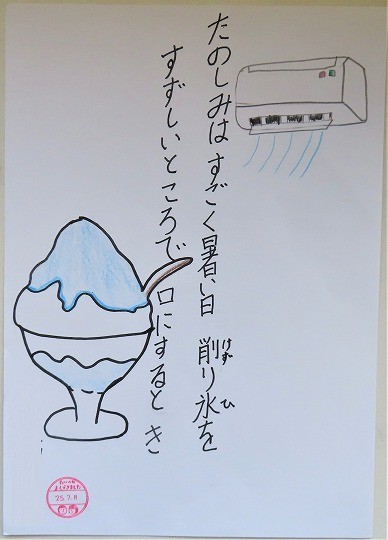 たのしみはすごく暑い日　削り氷を
けず　ひ
すずしいところで口にするとき
25.7.8